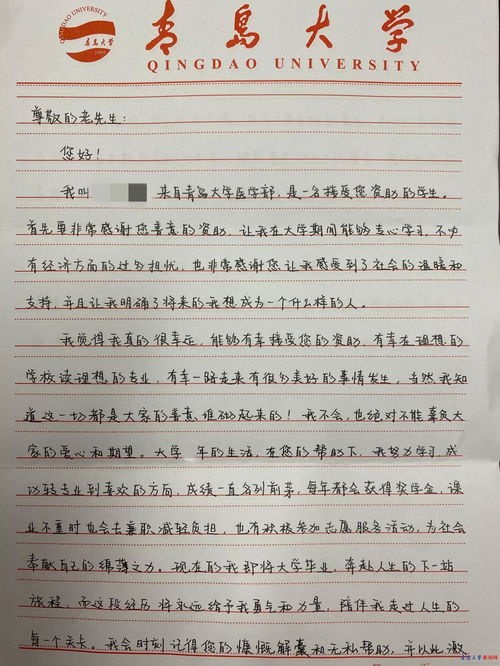 青岛大学
QINGDAO UNIVERSITY
尊敬的老先生：
您好！
我叫 来自青岛大学医学部，是一名接受您资助的学生。
首先要非常感谢您善意的资助，让我在大学期间能够专心学习，不必
有经济方面的过多担忧，也非常感谢您让我感受到了社会的温暖和
支持，并且让我明确了将来的我想成为一个什么样的人。
我觉得我真的很幸运，能够有幸接受您的资助，有幸在理想的
学校读理想的专业，有幸一路走来有很多美好的事情发生，当然我知
道这一切都是大家的善意堆砌起来的！我不会，也绝对不能辜负大
家的爱心和期望。大学 年的生活，在您的帮助下，我努力学习，成
功转专业到喜欢的方向，成绩一直名列前茅，每年都会获得奖学金，课
业不重时也会去兼职减轻负担，也有积极参加志愿服务活动，为社会
奉献自己的绵薄之力。现在的我即将大学毕业，奔赴人生的下一站
旅程，而这段经历将永远给予我勇气和力量，陪伴我走过人生的
每一个关卡。我会时刻记得您的慷慨解囊和无私帮助，并以此激
青岛大学新闻网